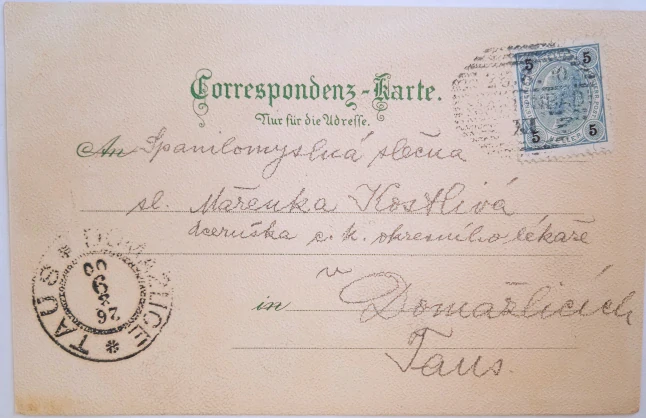 5 5
5 5
HELLER
Correspondenz-Karte.
Nur für die Adresse.
An Spanilomyslná slečna
sl. Mařenka Kostlivá
dceruška c. k. okresního lékaře
v
in Domažlicích
Taus.
TAUS * DOMAŽLICE *
26
9
00